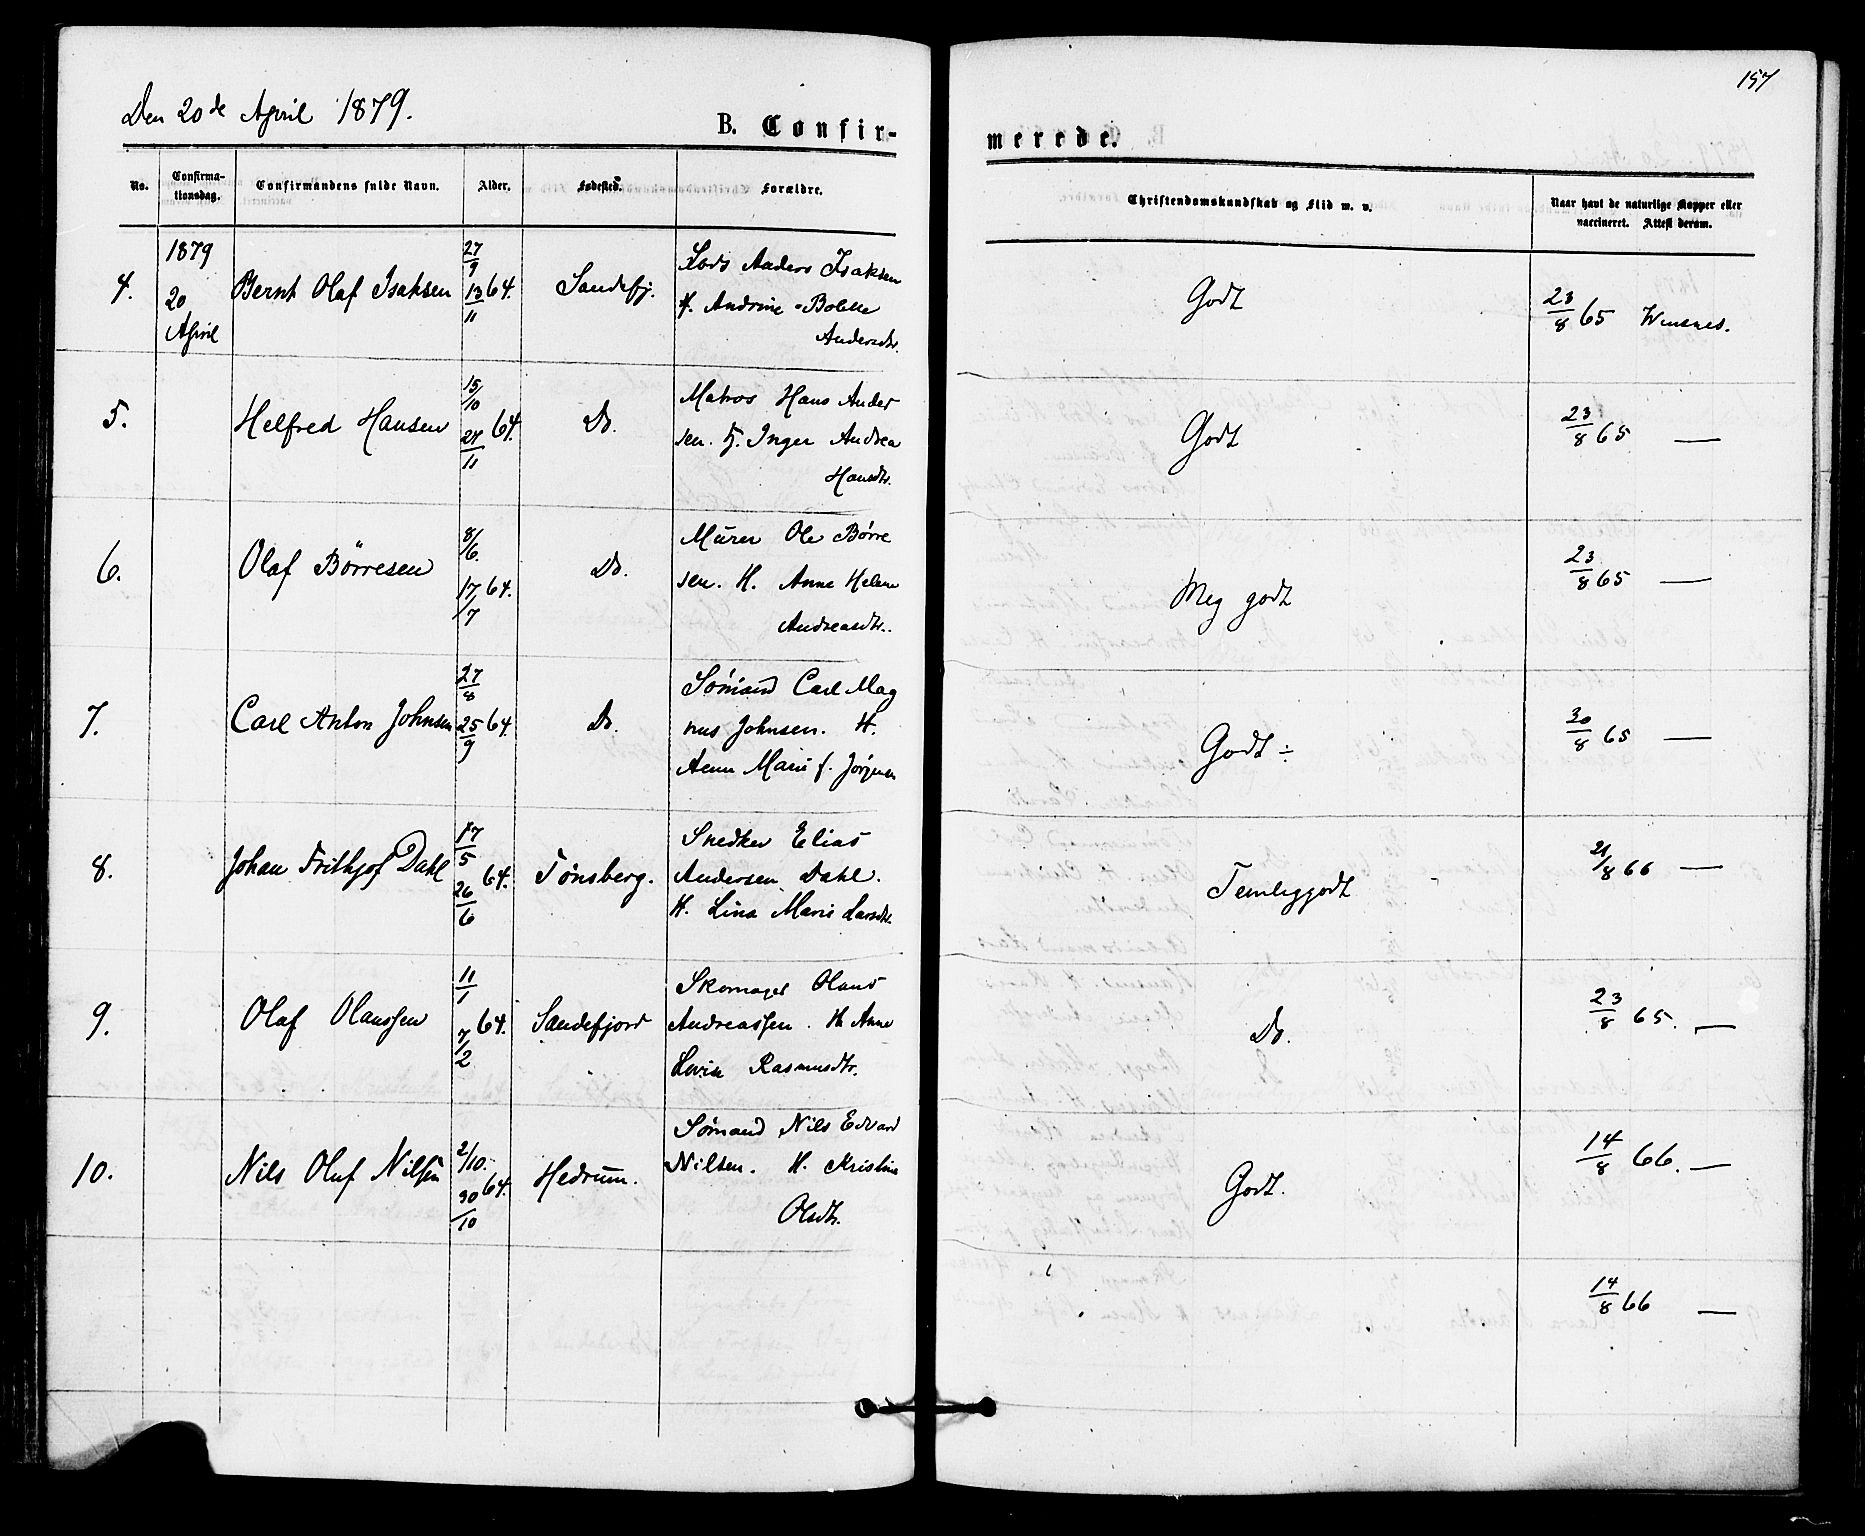 157
Den 20de April 1879.
B. Confir-
merede.
No.
Confirma-
tionsdag.
Confirmandens fulde Navn.
Alder.
Fødested.
Forældre.
Christendomskundskab og Flid m. v.
Naar havt de naturlige Kopper eller
vaccineret. Attest derom.
1879
20
April
4.
Bernt Olaf Isaksen
27/9
13/11 64.
Sandefj.
Lods Anders Isaksen
H. Andrine Bolette
Andersdtr.
Godt
23/8 65
5.
Helfred Hansen
15/10
27/11 64.
Do.
Matros Hans Ander
sen. H. Inger Andrea
Hansdtr.
Godt
23/8 65 —
6.
Olaf Börresen
8/6.
17/7 64.
Do.
Murer Ole Børre
sen. H. Anne Helene
Andreasdtr.
Meg godt
23/8 65 —
7.
Carl Anton Johnsen
27/8
25/9 64.
Do.
Sømand Carl Mag
nus Johnsen. H.
Marie f.
Godt ÷
30/8 65 —
8.
Johan Frithjof Dahl
17/5
26/6 64.
Tønsberg.
Snedker Elias
Andersen Dahl.
H. Lina Marie Larsdtr.
Temlig godt
21/8 66 —
9.
Olaf Olaussen
11/1
7/2 64.
Sandefjord
Skomager Olaus
Andreassen. H. Anne
Rasmusdtr.
Do.
23/8 65. —
10.
Nils Oluf Nilsen
2/10.
30/10 64.
Hedrum.
Sømand Nils Edvard
Nilsen. H. Kristine
Olsdtr.
Godt.
14/8 66. —
14/8 66 —